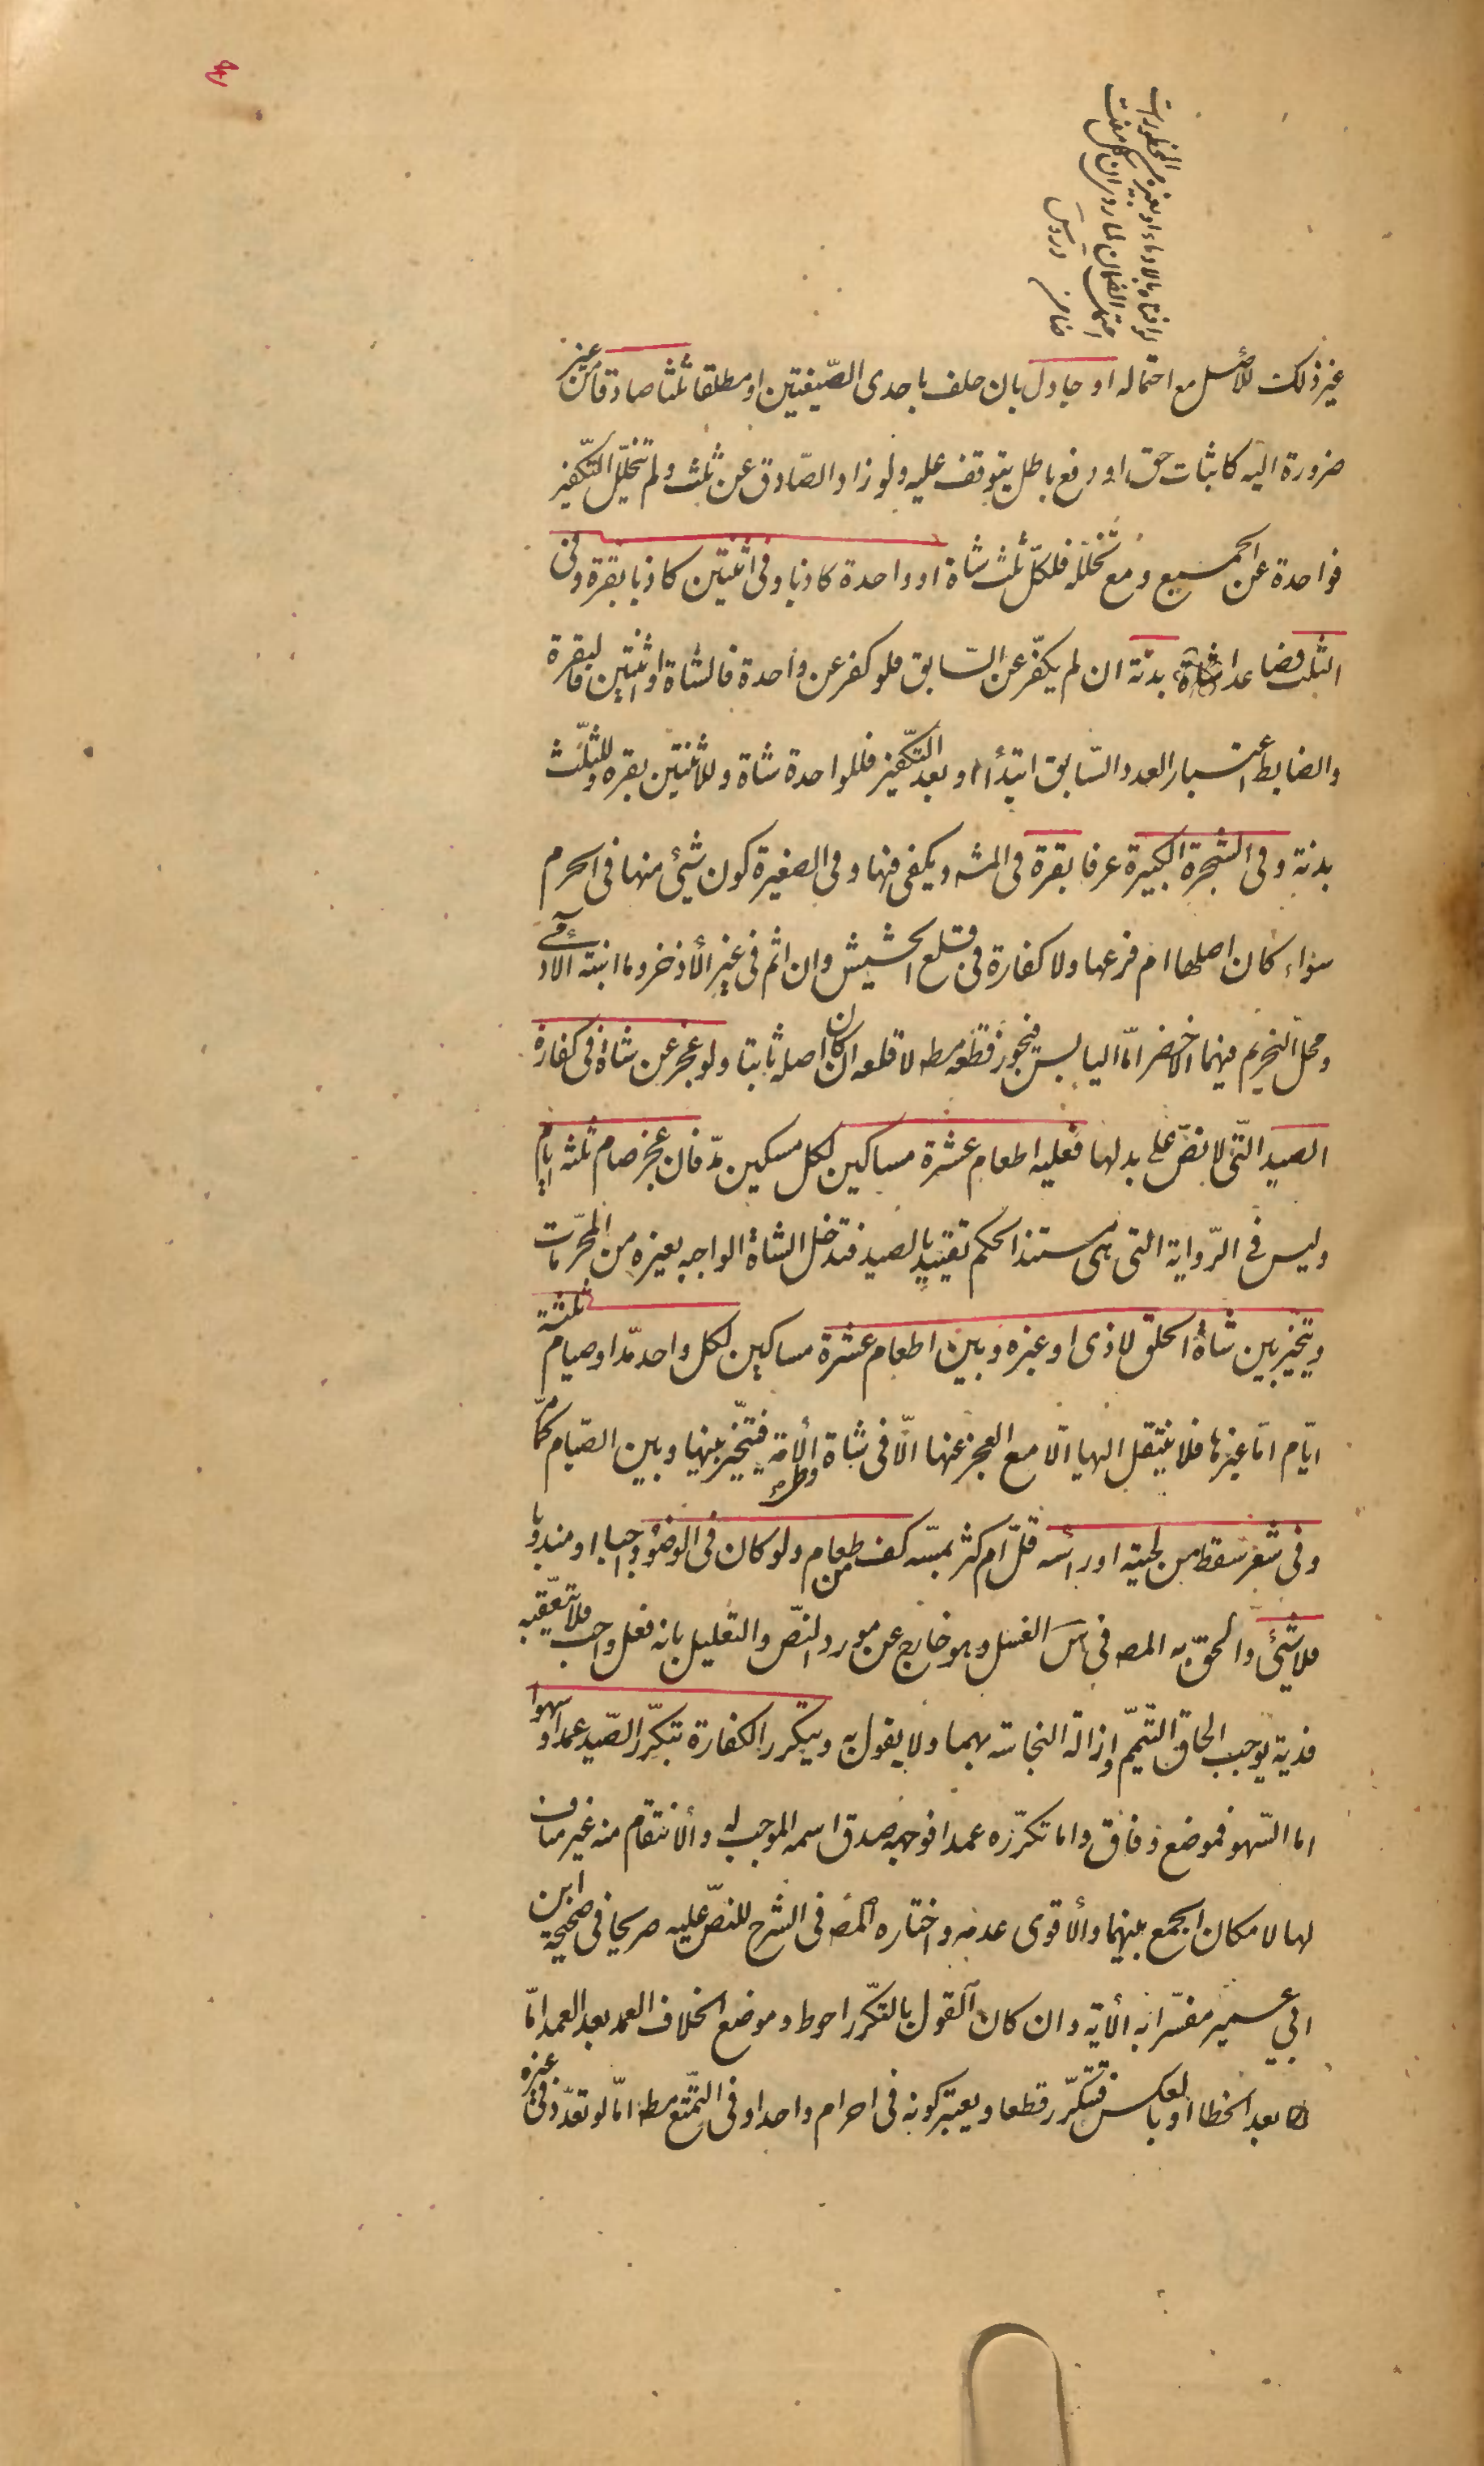 لو افتاه بالادماء او بغيره من المحظورات
احتمل الضمان لما روي ان كل مفت
ضامن دروس
غير ذلك للأصل مع احتماله او جادل بان حلف باحدى الصّيغتين او مطلقا ثلثا صادقا من غير
ضرورة اليه كاثبات حق او دفع باطل يتوقف عليه ولو زاد الصّادق عن ثلث ولم تتخلّل التّكفير
فواحدة عن الجميع ومع تخلله فلكلّ ثلث شاة او واحدة كاذبا وفى اثنتين كاذبا بقرة وفى
الثلث فضاعدا بدنة ان لم يكفّر عن السّابق فلو كفر عن واحدة فالشاة او اثنتين فالبقرة
والضابط اعتبار العدد السّابق ابتدأ او بعد التّكفير فللواحدة شاة وللاثنتين بقره وللثّلث
بدنة وفى الشّجرة الكبيرة عرفا بقرة فى المشه ويكفى فيها وفى الصغيرة كون شيئ منها فى الحرم
سواء كان اصلها ام فرعها ولا كفارة فى قلع الحشيش وان اثم فى غير الأذخر وما انبته الآدمى
ومحل التحريم فيهما الاخضر امّا اليابس فيجوز قطعه مطه لا قلعه ان كان اصله ثابتا ولو عجز عن شاة فى كفارة
الصيد التّى لا نصّ على بدلها فعليه اطعام عشرة مساكين لكل مسكين مدّ فان عجز صام ثلثه ايام
وليس فى الرّواية التى هى مستند الحكم تقييد بالصيد فتدخل الشاة الواجبه بغيره من المحرّمات
ويتخيّر بين شاة الحلق لاذى او غيره وبين اطعام عشرة مساكين لكل واحد مدّ او صيام ثلثة
ايّام امّا غيرها فلا ينتقل اليها الّا مع العجز عنها الّا فى شاة وطء الأمة فيتخيّر بينها وبين الصّيام كما مرّ
وفى شعر سقط من لحيته او رأسه قلّ ام كثر بمسّه كف من طعام ولو كان فى الوضوء واجبا او مندوبا
فلا شيئ والحق به المصه فى س الغسل وهو خارج عن مورد النّص والتعليل بانه فعل واجب فلا تعقّبه
فدية يوجب الحاق التّيمّم وازالة النجاسة بهما ولا يقول به ويتكرر الكفارة بتكرّر الصّيد عمدا او سهوا
اما السّهو فموضع وفاق واما تكرّره عمدا فوجهه صدق اسمه الموجب له والأنتقام منه غير مناف
لها لامكان الجمع بينهما والأقوى عدمه واختاره المصه فى الشرح للنصّ عليه صريحا فى صحيحة ابن
ابي عمير مفسّرا به الأية وان كان القول بالتّكرّر احوط وموضع الخلاف العمد بعد العمد امّا
بعد الخطا او بالعكس فتتكرّر قطعا ويعتبر كونه فى احرام واحد او فى التّمتّع مطه امّا لو تعدّد فى غيره